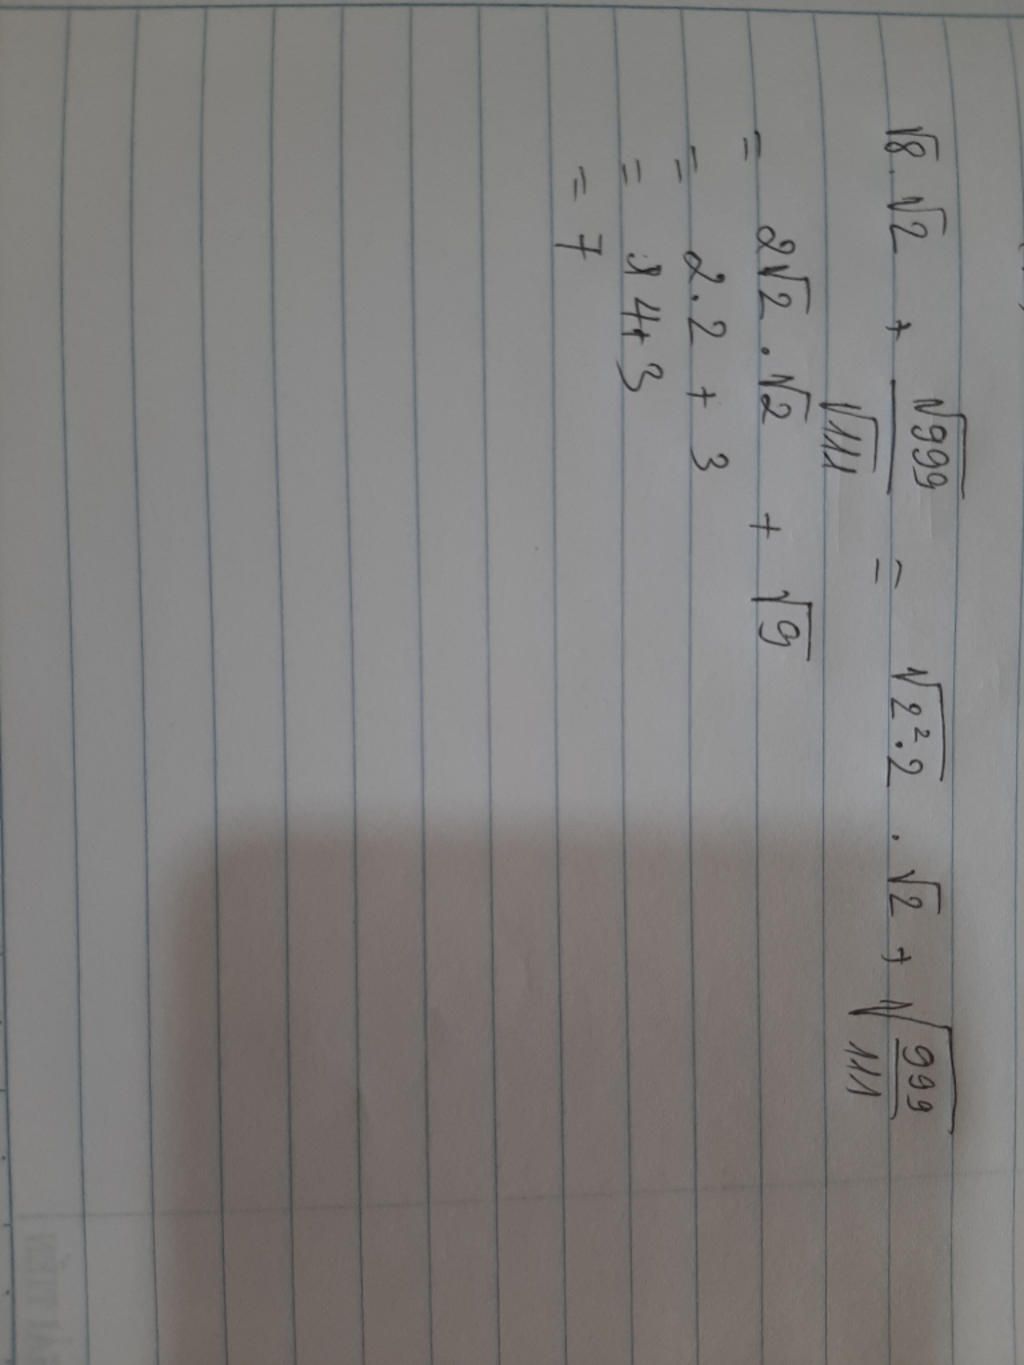 √8 . √2 + √999/√111 = √2².2 . √2 + √999/111
= 2√2 . √2 + √9
= 2.2 + 3
= 4+3
= 7